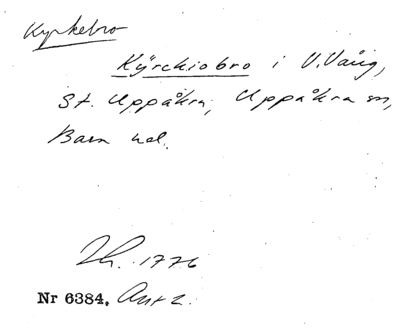 Kyrkebro
Kÿrchiobro i V. Vång,
St. Uppåkra, Uppåkra sn,
Bara hd.
Lh. 1776
Nr 6384. Akt 2.